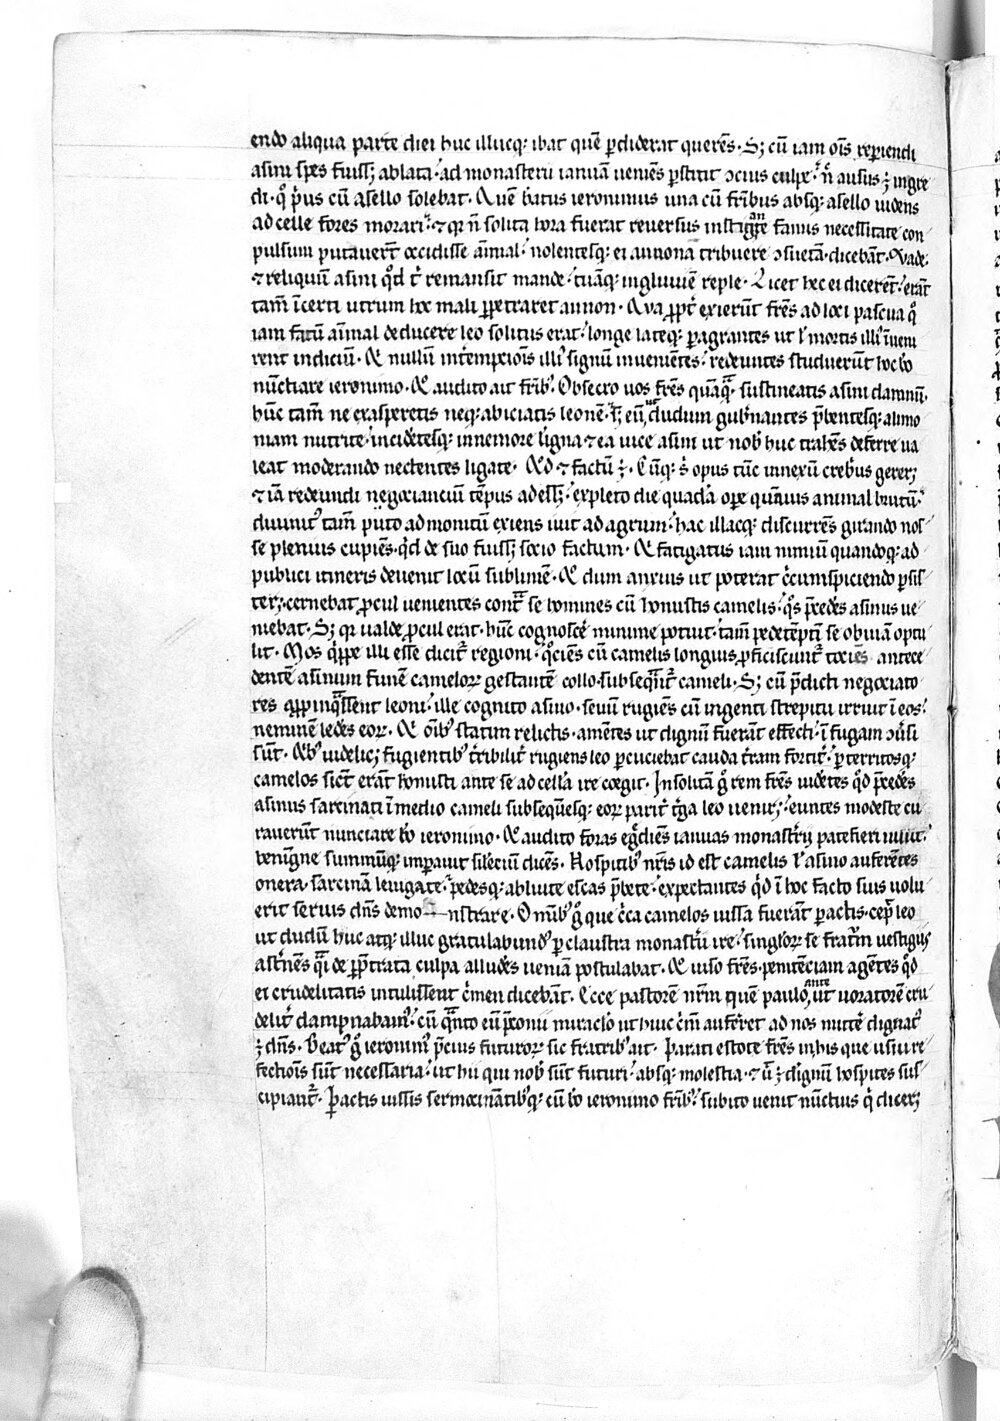 endo aliqua parte diei huc illucq; ibat quē p̄diderat querēs. S; cū iam oīs reperiendi
asini spes fuiss; ablata. ad monasterii ianuā veniēs p̄stitit ɔcius culpe. n̄ ausus ÷ ingre
di. qͦ pⁱus cū asello solebat. Quē batus ieronimus una cū frībus absq; asello uidens
ad celle fores morari. ⁊ qꝛ n̄ solita hora fuerat reversus instigāte famis necessitate con
pulsum putauerūt occidisse aīmal. nolentesq; ei annonā tribuere ɔsuetā. dicebāt. Vade.
⁊ reliquum asini qͦd tⁱ remansit mande. tuāq; ingluuiem reple. Licet hec ei dicerēt. erāt
tam̄ īcerti utrum hoc mali ꝑpetraret annon. Qua ꝓpt̄ exierūt frēs ad loci pascua qͦ
iam fatū aīmal deducere leo solitus erat. longe lateq; ꝑagrantes ut ł mortis illiꝰ inueni
rent indicium. Et nullum intempciōis illiꝰ signum inuenientes. redeuntes studuerūt hoc bō
nūctiare ieronimo. Et audito ait frībꝰ. Obsecro uos frēs quāqᵃ. sustineatis asini damnū.
hūc tam̄ ne exasperetis neq; abiciatis leonē. s; eū ut dudum gubˀnantes p̄bentesq; alimo
niam nutrite. incidētesq; innemore ligna ⁊ ea uice asini ut nobˀ huc trahēs deferre ua
leat moderando nectentes ligate. Qͦd ⁊ factū ÷. Cūq; sⁱ opus tūc innexū crebriꝰ gerer;
⁊ iā redeundi negociancium tēpus adess; expleto die quadā oꝑe quāuis animal brutū.
diuinitꝰ tam̄ puto admonitū exiens iuit ad agrum. hac illacq; discurrēs girando nos
se plenius cupiēs. qͥd de suo fuiss; socio factum. Et fatigatus iam nimiū quandoq; ad
publici itineris deuenit locū sublimē. Et dum anxius ut poterat cⁱcumspiciendo ꝑsis
ter; cernebat ꝓcul uenientes contᵃ se homines cū honustis camelis. qͦs p̄cedēs asinus ue
niebat. S; qꝛ ualde ꝓcul erat. hūc cognosceˀ minime potuit. tam̄ pedetēptī se obuiam optu
lit. Mos qͥppe illi esse dicitˀ regioni. qͦciēs cū camelis longius ꝓficiscuntˀ tociēs antece
dentē asinum funē camelorꝫ gestantē collo. subseqᵘntˀ cameli. S; cū p̄dicti negociato
res aꝓpinqᵃssent leoni. ille cognito asino. seuum rugiēs cū ingenti strepitu irruit ī eos.
neminē ledēs eorꝫ. At oībꝰ statim relictis. amētes ut dignum fuerāt effecti. ī fugam ɔuˀsi
sūt. Qͥbꝰ uidelic; fugientibꝰ tˀribilitˀ rugiens leo ꝑcuciebat cauda tˀram fortitˀ. ꝑterritosq;
camelos sicut erāt honusti ante se ad cellā ire coegit. Insolitā gͦ rem frēs uidētes qͦd p̄cedēs
asinus sarcinati ī medio cameli subsequēsq; eorꝫ paritˀ tˀga leo uenir; euntes modeste cu
rauerūt nunciare bō ieronimo. Et audito foras egˀdiēs ianuas monastˀij patefieri iuuit.
benigne summūq; imꝑauit silēciū dicēs. Hospitibꝰ nr̄is id est camelis ł asino auferētes
onera. sarcinā leuigate. pedesq; abluite escas p̄bete. expectantes qͥd ī hoc facto suis uolu
erit seruis dn̄s demo nstrare. Omībꝰ gͦ que cⁱca camelos iussa fuerāt ꝑactis. cep̄ leo
ut dudū huc atq; illuc gratulabundꝰ ꝑ claustra monastˀii ire. singłorꝫ se fratrūm uestigiis
astˀnēs qᵃi de ꝑpetrata culpa alludēs ueniā postulabat. At uiso frēs penitēciam agētes qͥd
ei crudelitatis intulissent cˀimen dicebāt. Ecce pastorē nr̄m quē paulo ante ut uoratorē cru
delitˀ dampnabamꝰ. cū qᵃnto eū p̄conii miraclo ut huiꝰ cⁱm̄ auferret ad nos mittˀe dignatꝰ
÷ dn̄s. Beatꝰ gͦ ieronimꝰ p̄scius futurorꝫ sic fratribꝰ ait. Parati estote frēs inhis que usui re
fectiōis sūt necessaria. ut hii qui nobˀ sūt futuri. absq; molestia. ⁊ ut ÷ dignū hospites sus
cipiantˀ. Pactis iussis sermocinātibꝰq; cū bō ieronimo frībꝰ. subito uenit nūctius qͥ dicer;